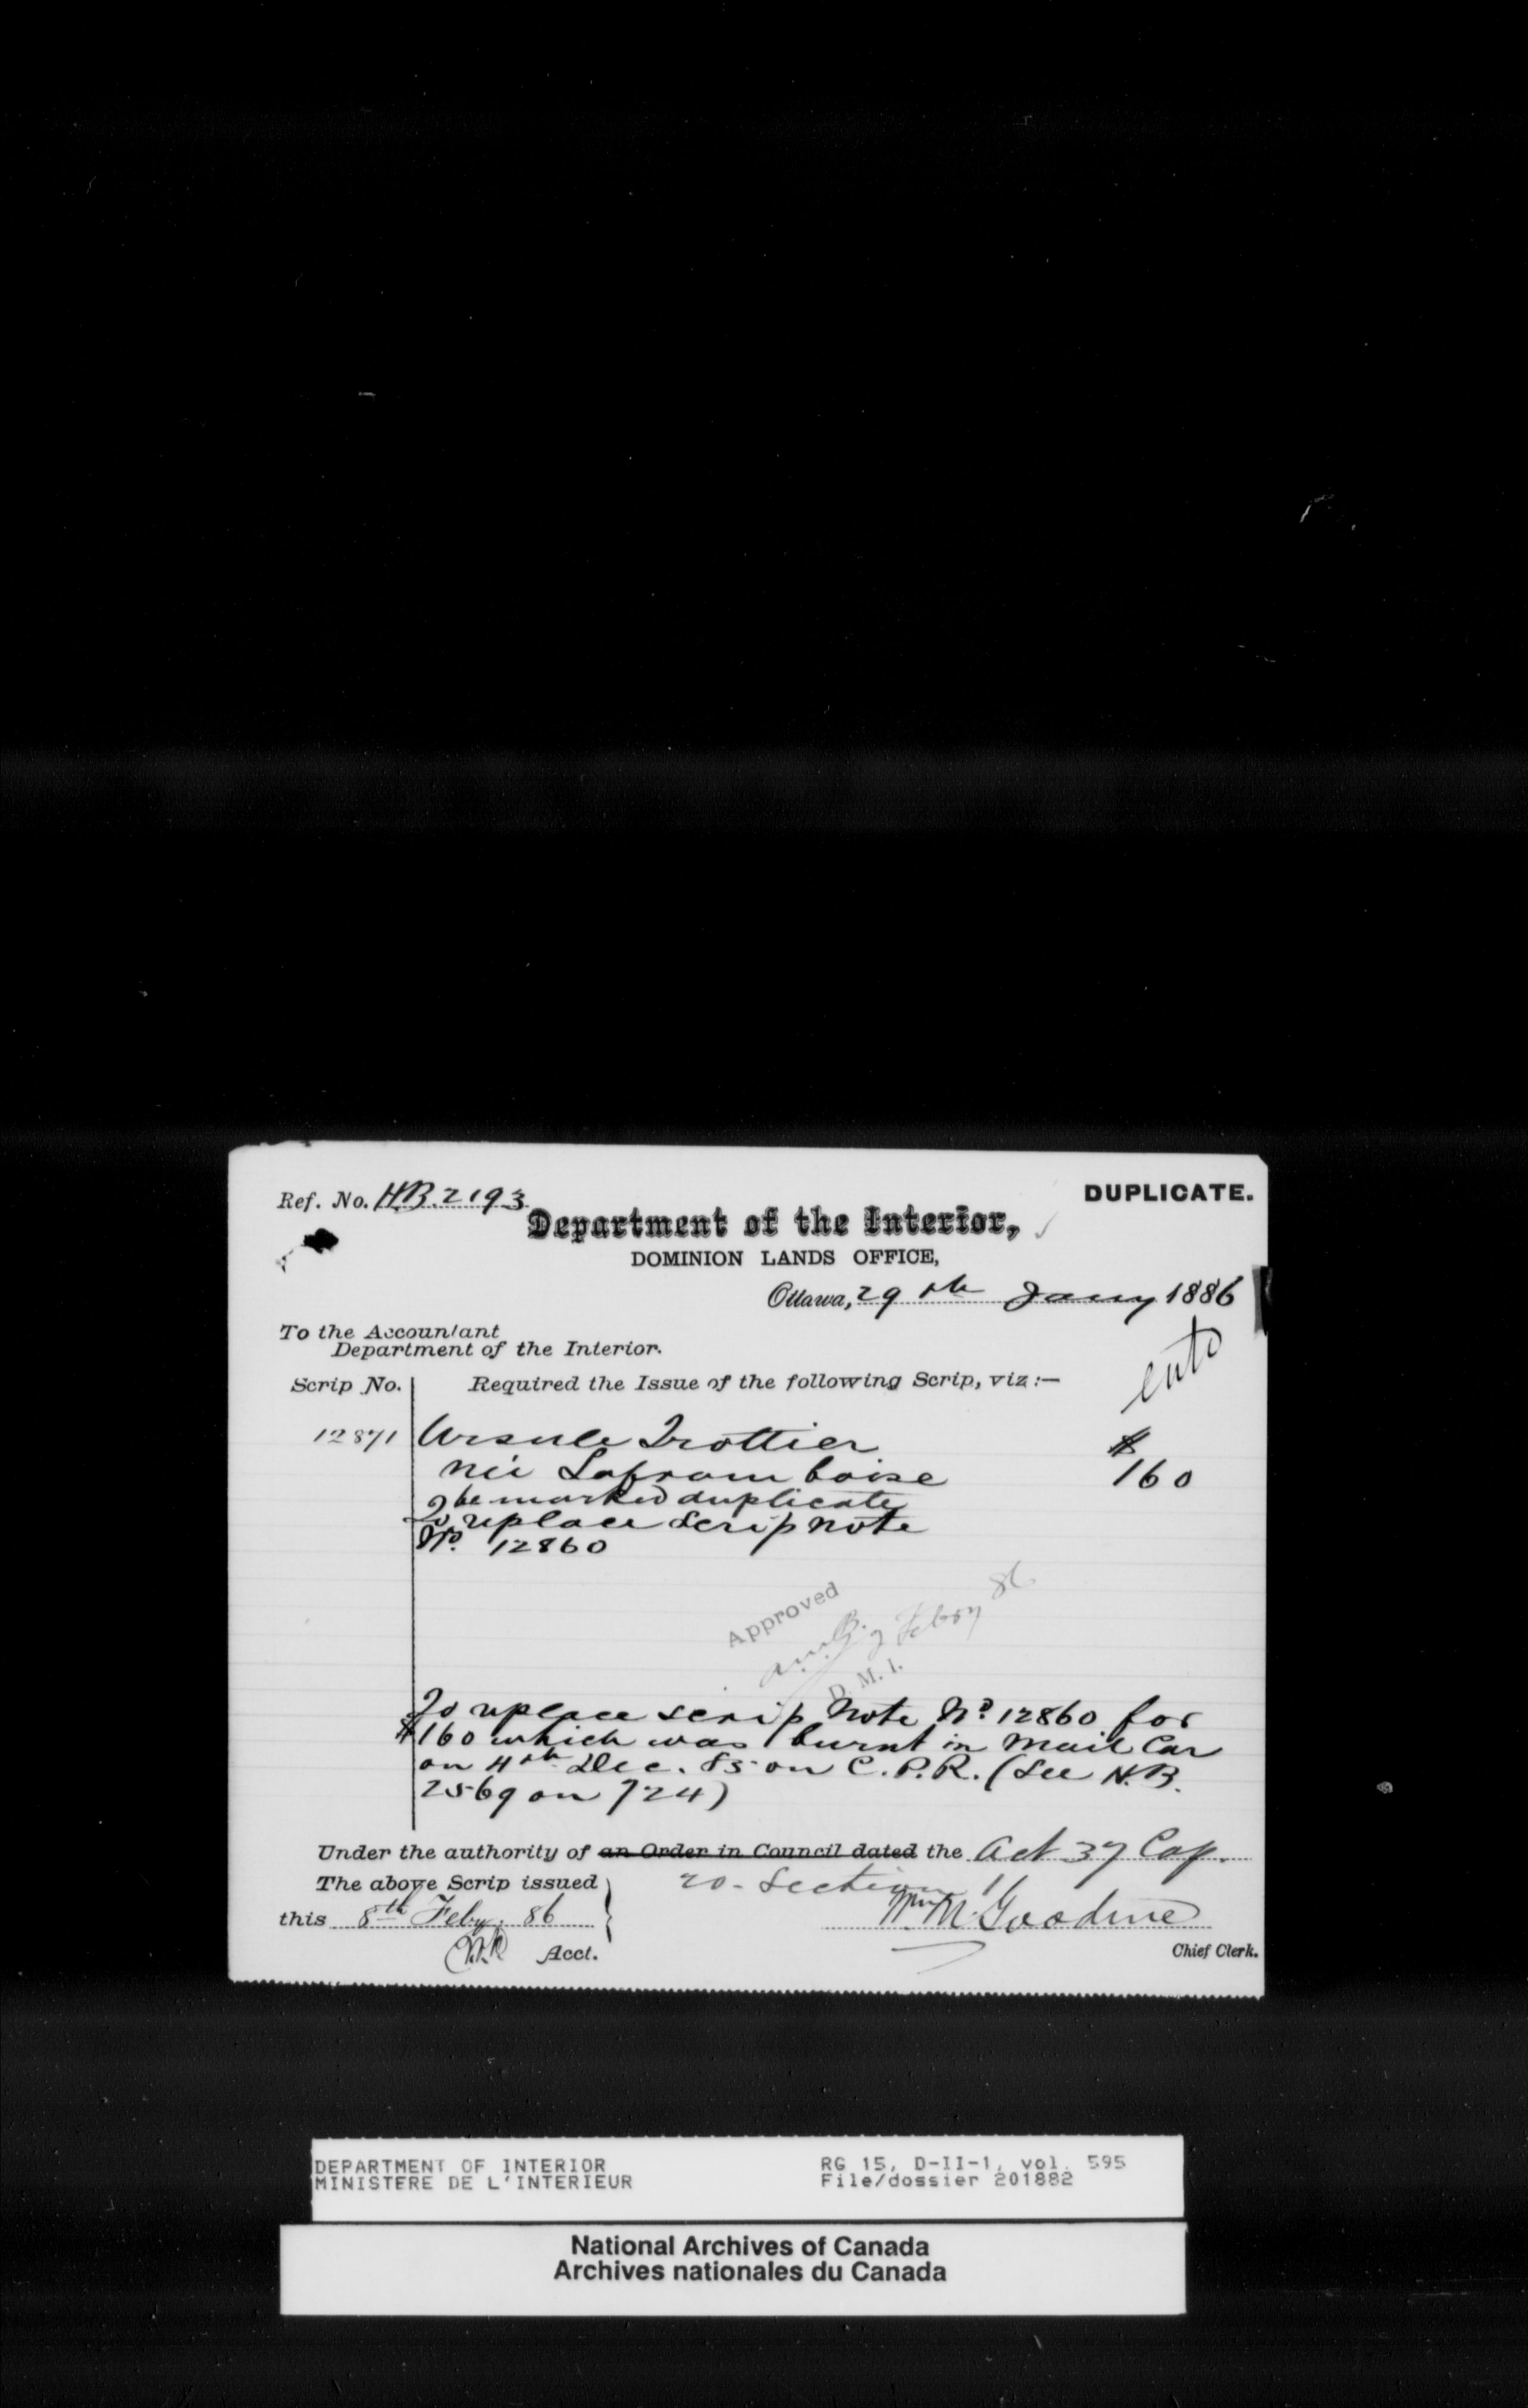 Ref. No. HB. 2193
DUPLICATE.
Department of the Interior,
DOMINION LANDS OFFICE,
Ottawa, 29th Jany 1886
To the Accountant
Department of the Interior.
Scrip No. Required the Issue of the following Scrip, viz:—
12871 Ursule Trottier $
née Laframboise 160
To be marked duplicate
To replace scrip note
No. 12860
Approved
2 Febry 86
D. M. I.
To replace scrip Note No. 12860 for
$160 which was burnt in Mail Car
on 4th Dec. 85 on C.P.R. (See H.B.
2569 on 724)
Under the authority of an Order in Council dated the Act 37 Cap.
20 - Section 11
The above Scrip issued
this 8th Feby. 86
Wm M. Goodeve
Acct.
Chief Clerk.
DEPARTMENT OF INTERIOR
MINISTERE DE L'INTERIEUR
RG 15, D-II-1, vol. 595
File/dossier 201882
National Archives of Canada
Archives nationales du Canada